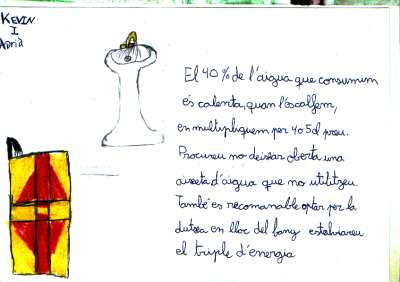 KEVIN
I
Adrià
El 40% de l'aigua que consumim
és calenta, quan l'éscalfem,
en multipliquem per 4o5 el preu.
Procureu no deixar oberta una
aixeta d'aigua que no utilitzeu.
També es recomanable optar per la
dutxa en lloc del bany estalviareu
el triple d'energia